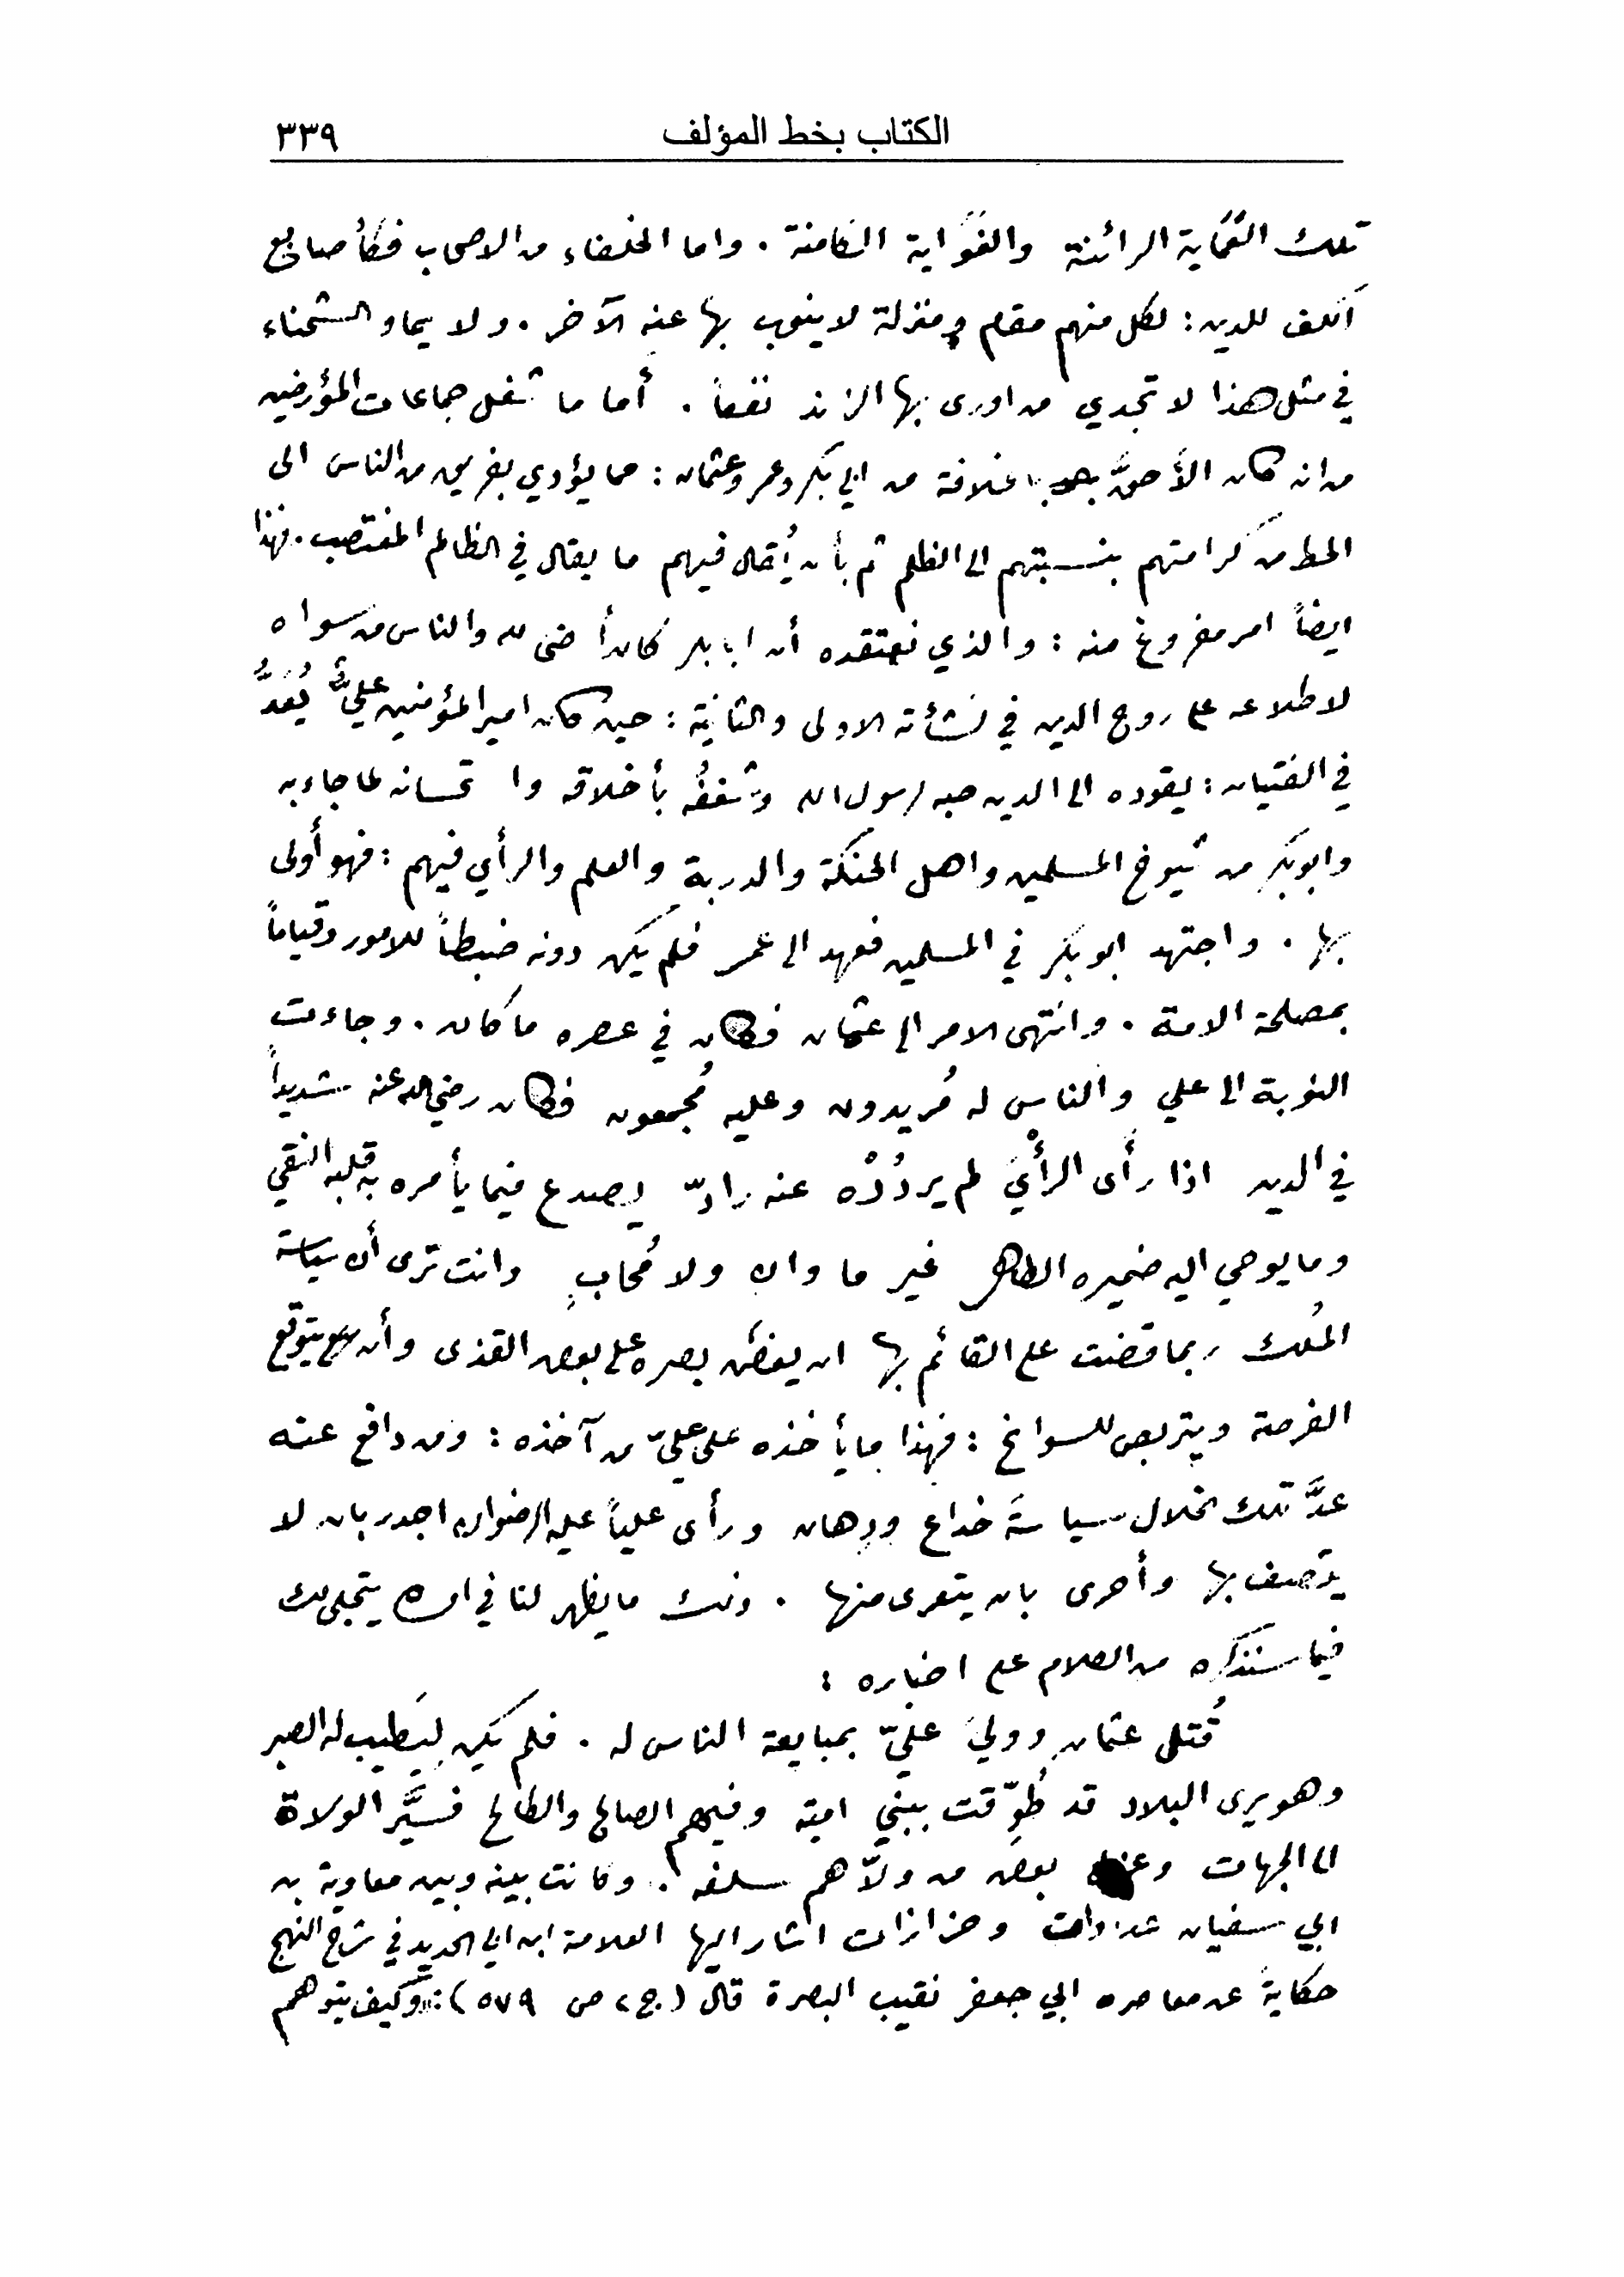 الكتاب بخط المؤلف ٣٣٩
تلك العَماية الرائنة والغَواية الكامنة . واما الخلفاء من الاصحاب فكأصابع
الكف للدين : لكل منهم مقام ومنزلة لا ينوب بها عنه الآخر . ولا سيما والشحناء
في مثل هذا لا تجدي من اورى بها الزند نفعاً . أما ما شغل جماعات المؤرخين
من انه كان الأحقَّ بالخلافة من ابي بكر وعمر وعثمان : مما يؤدي بفريق من الناس الى
الحط من كرامتهم بنسبتهم الى الظلم ثم بأن يُقال فيهم ما يقال في الظالم المغتصب . فهذا
ايضاً امر مفروغ منه : والذي نعتقده أن ابا بكر كان أرضى لله والناس من سواه
لاطلاعه على روح الدين في نشأته الاولى والثانية : حين كان امير المؤمنين عليٌّ يُعَدُّ
في الفتيان : يقوده الى الدين حبه لرسول الله وشغفُه بأخلاقه واستحسانه لما جاء به
وابو بكر من شيوخ المسلمين واهل الحنكة والدربة والعلم والرأي فيهم : فهو أولى
بها . واجتهد ابو بكر في المسلمين فعهد الى عمر فلم يكن دونه ضبطاً للامور وقياماً
بمصلحة الامة . وانتهى الامر الى عثمان فكان في عصره ما كان . وجاءت
النوبة الى علي والناس له مُريدون وعليه مُجمعون فكان رضي الله عنه شديداً
في الدين اذا رأى الرأْيَ لم يردُدْه عنه رادّ يصدع فيما يأمره به قلبه النقي
وما يوحي اليه ضميره الطاهر غير ما وانٍ ولا مُحابٍ وانت ترى أن سياسة
المُلك ربما قضت على القائم بها ان يغضَّ بصره على بعض القذى وأن يتوقع
الفرصة ويتربص للسوانح : فهذا ما يأخذه على عليّ من آخذه : ومن دافع عنه
عدَّ تلك الخلال سياسةَ خداع ودهان ورأى علياً عليه الرضوان اجدر بان لا
يتصف بها وأحرى بان يتعرى منها . وذلك ما يظهر لنا في امره يتجلى لك
فيما سنذكره من الكلام على اخباره :
قُتل عثمان ووليَ عليّ بمبايعة الناس له . فلم يكن لِيَطيب له الصبر
وهو يرى البلاد قد طُوِّقت ببني امية وفيهم الصالح والطالح فسيَّر الولاة
الى الجهات وعزل بعض من ولاّهم سلفه . وكانت بينه وبين معاوية بن
ابي سفيان عداوات وحزازات اشار اليها العلامة ابن ابي الحديد في شرح النهج
حكايةً عن معاصره ابي جعفر نقيب البصرة قال (ج٢ ص ٥٧٩) : «وكيف يتوهم